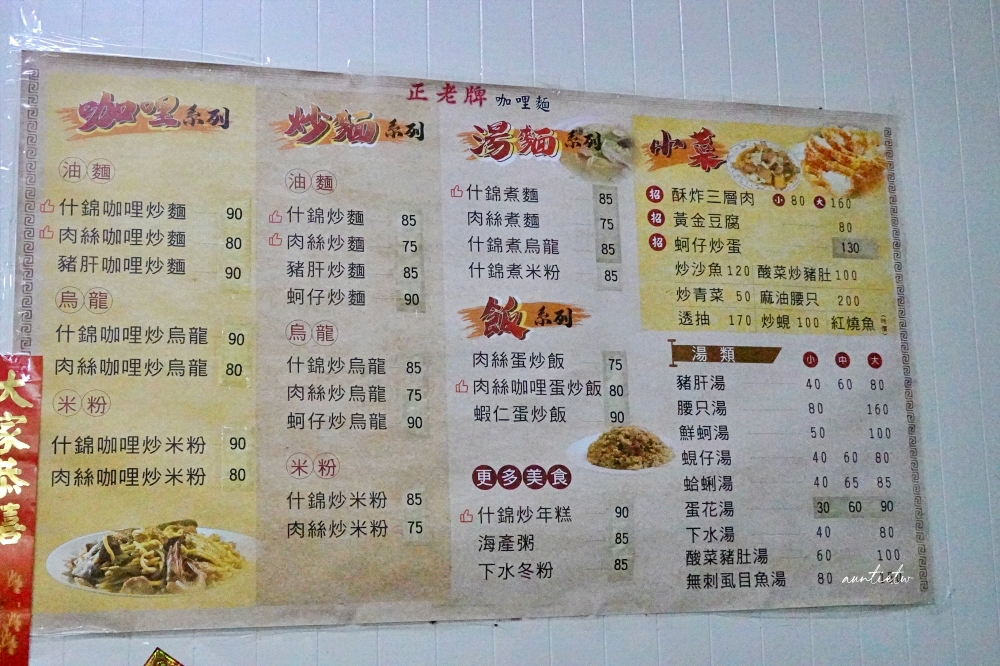 正老牌 咖哩麵
咖哩系列
油麵
什錦咖哩炒麵 90
肉絲咖哩炒麵 80
豬肝咖哩炒麵 90
烏龍
什錦咖哩炒烏龍 90
肉絲咖哩炒烏龍 80
米粉
什錦咖哩炒米粉 90
肉絲咖哩炒米粉 80
炒麵系列
油麵
什錦炒麵 85
肉絲炒麵 75
豬肝炒麵 85
蚵仔炒麵 90
烏龍
什錦炒烏龍 85
肉絲炒烏龍 75
蚵仔炒烏龍 90
米粉
什錦炒米粉 85
肉絲炒米粉 75
湯麵系列
什錦煮麵 85
肉絲煮麵 75
什錦煮烏龍 85
什錦煮米粉 85
飯系列
肉絲蛋炒飯 75
肉絲咖哩蛋炒飯 80
蝦仁蛋炒飯 90
更多美食
什錦炒年糕 90
海產粥 85
下水冬粉 85
小菜
招 酥炸三層肉 小 80 大 160
招 黃金豆腐 80
招 蚵仔炒蛋 130
炒沙魚 120 酸菜炒豬肚 100
炒青菜 50 麻油腰只 200
透抽 170 炒蜆 100 紅燒魚
湯類 小 中 大
豬肝湯 40 60 80
腰只湯 80 160
鮮蚵湯 50 100
蜆仔湯 40 60 80
蛤蜊湯 40 65 85
蛋花湯 30 60 90
下水湯 40 80
酸菜豬肚湯 60 100
無刺虱目魚湯 80
大家恭喜
auntietw